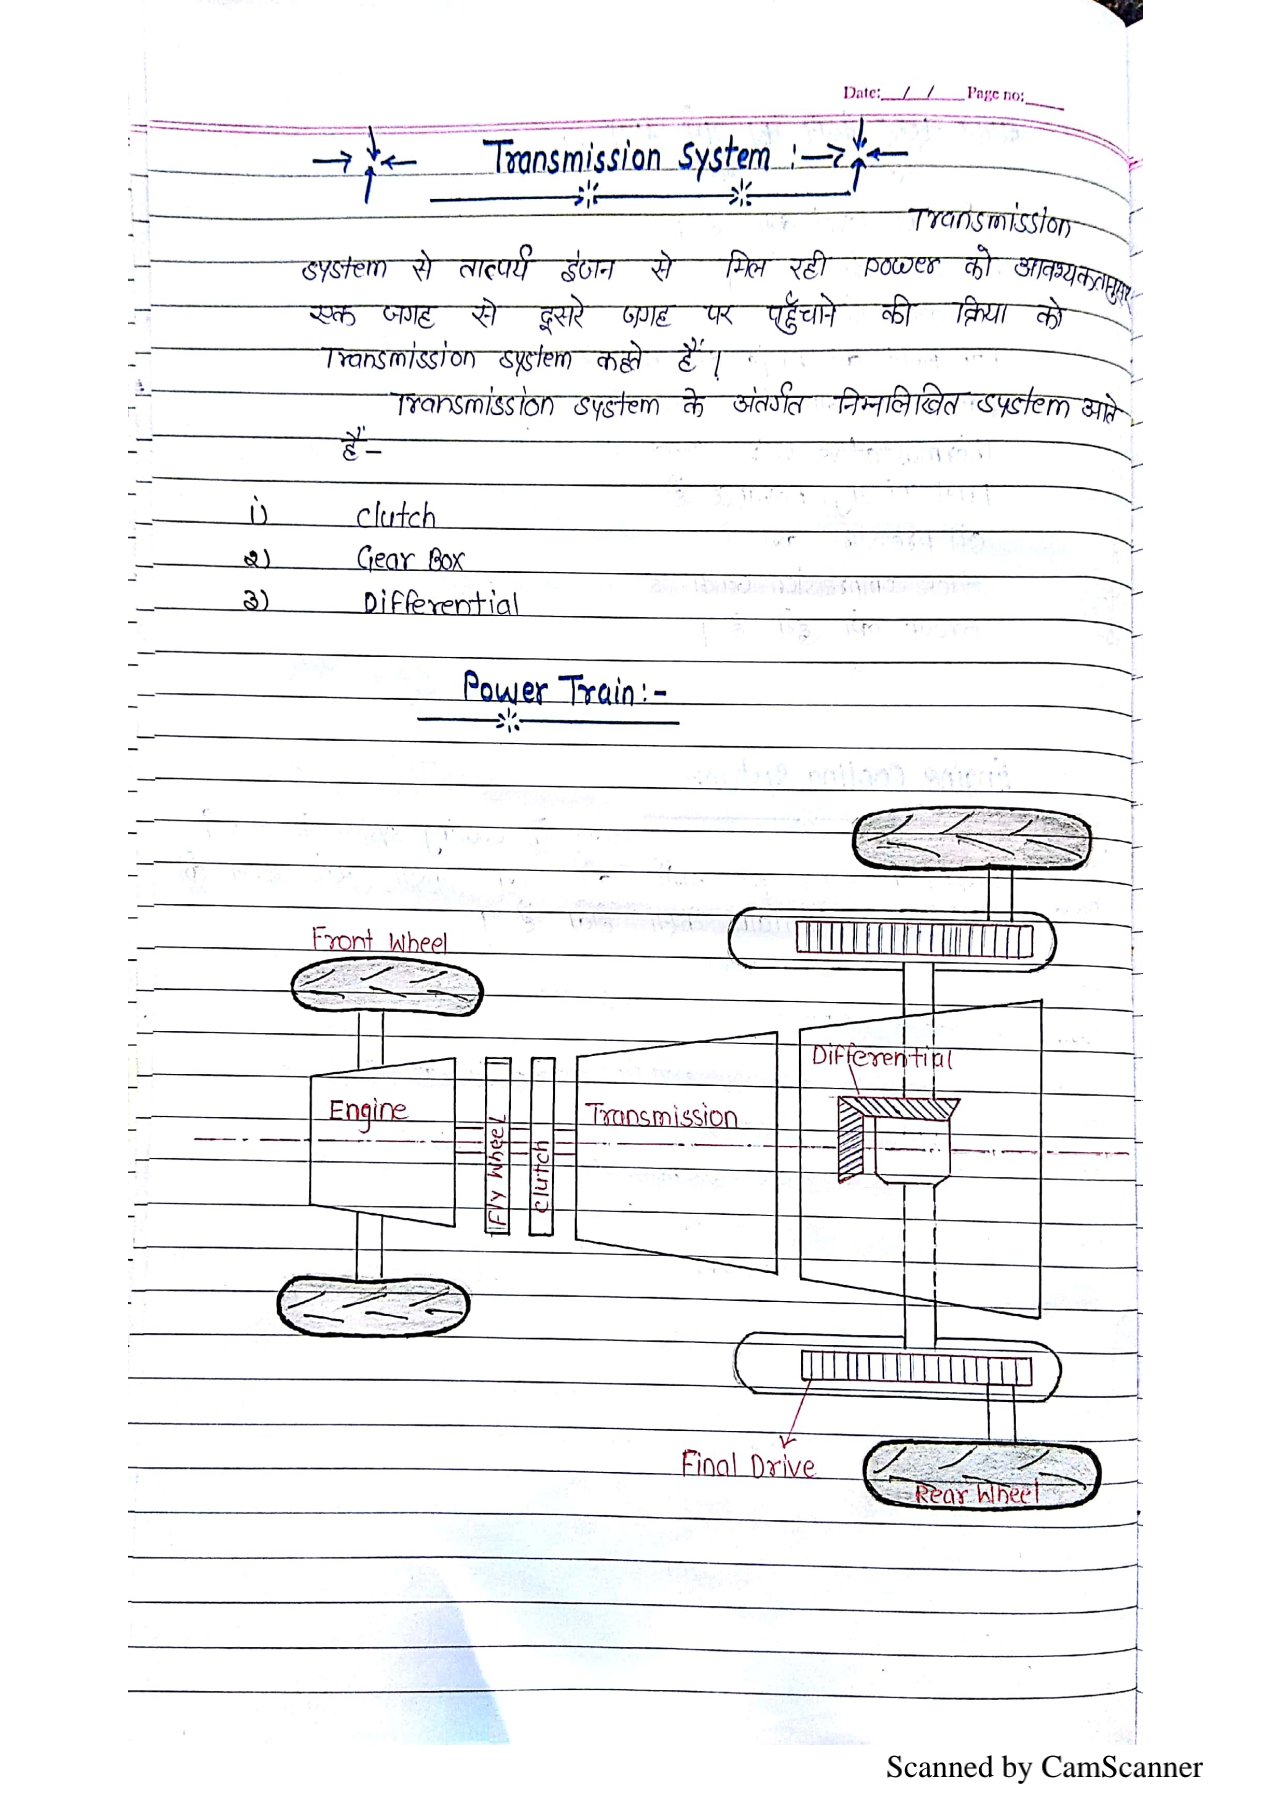 Date: / / Page no:
Transmission System :-
Transmission
system से तात्पर्य इंजन से मिल रही power को आवश्यकतानुसार
एक जगह से दूसरे जगह पर पहुँचाने की क्रिया को
Transmission system कहते हैं।
Transmission system के अंतर्गत निम्नलिखित system आते
हैं-
i) Clutch
२) Gear Box
३) Differential
Power Train:-
Front Wheel
Differential
Engine
Transmission
Fly Wheel
Clutch
Final Drive
Rear Wheel
Scanned by CamScanner